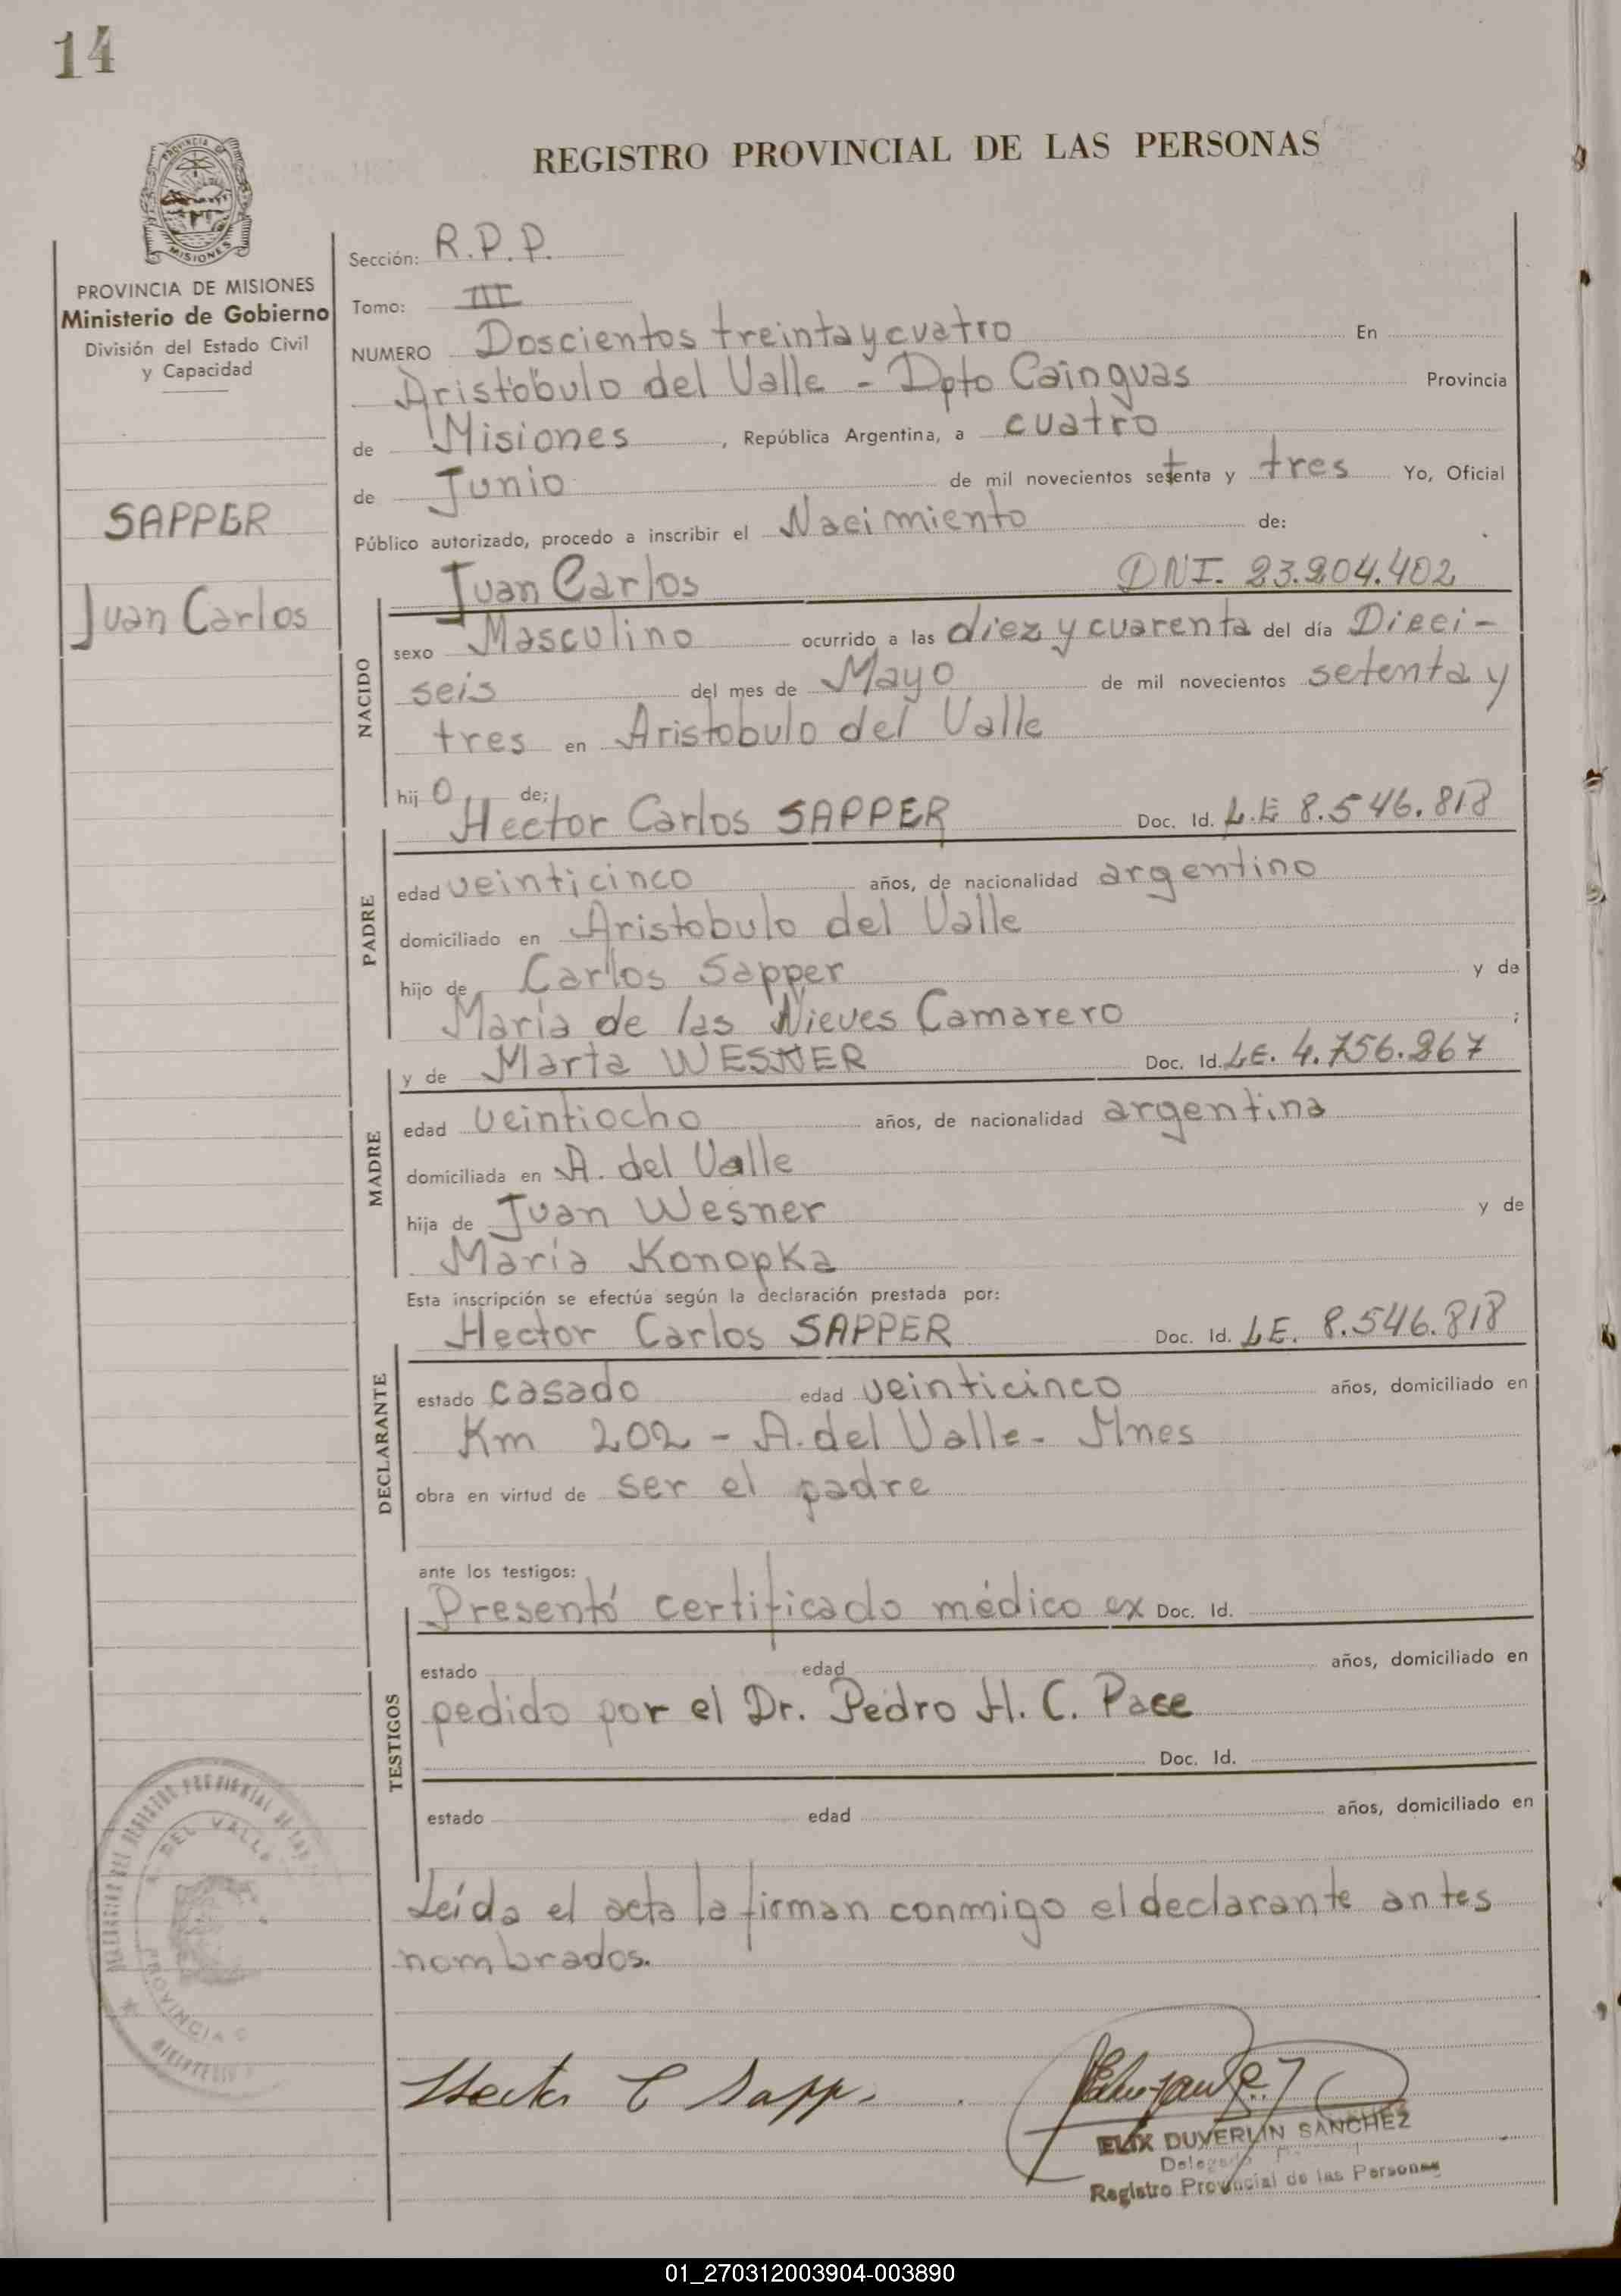 14
REGISTRO PROVINCIAL DE LAS PERSONAS
PROVINCIA DE
MISIONES
PROVINCIA DE MISIONES
Ministerio de Gobierno
División del Estado Civil
y Capacidad
SAPPER
Juan Carlos
Sección: R.P.P.
Tomo: III
NUMERO Doscientos treinta y cuatro En
Aristóbulo del Valle - Dpto Cainguas Provincia
de Misiones, República Argentina, a cuatro
de Junio de mil novecientos setenta y tres Yo, Oficial
Público autorizado, procedo a inscribir el Nacimiento de:
Juan Carlos DNI. 23.204.402
NACIDO
sexo Masculino ocurrido a las diez y cuarenta del día Dieci-
seis del mes de Mayo de mil novecientos setenta y
tres en Aristobulo del Valle
hijo de:
Hector Carlos SAPPER Doc. Id. L.E 8.546.818
PADRE
edad veinticinco años, de nacionalidad argentino
domiciliado en Aristobulo del Valle
hijo de Carlos Sapper y de
María de las Nieves Camarero ;
y de Marta WESNER Doc. Id. LE. 4.756.267
MADRE
edad veintiocho años, de nacionalidad argentina
domiciliada en A. del Valle
hija de Juan Wesner y de
María Konopka
Esta inscripción se efectúa según la declaración prestada por:
Hector Carlos SAPPER Doc. Id. LE. 8.546.818
DECLARANTE
estado casado edad veinticinco años, domiciliado en
Km 202 - A. del Valle - Mnes
obra en virtud de ser el padre
ante los testigos:
Presentó certificado médico ex Doc. Id.
TESTIGOS
estado edad años, domiciliado en
pedido por el Dr. Pedro H. C. Pace
Doc. Id.
estado edad años, domiciliado en
Leída el acta la firman conmigo el declarante antes
nombrados.
DEL VALLE
PROVINCIA
Hector C Sapper
ELIX DUVERLIN SANCHEZ
Registro Provincial de las Personas
01_270312003904-003890